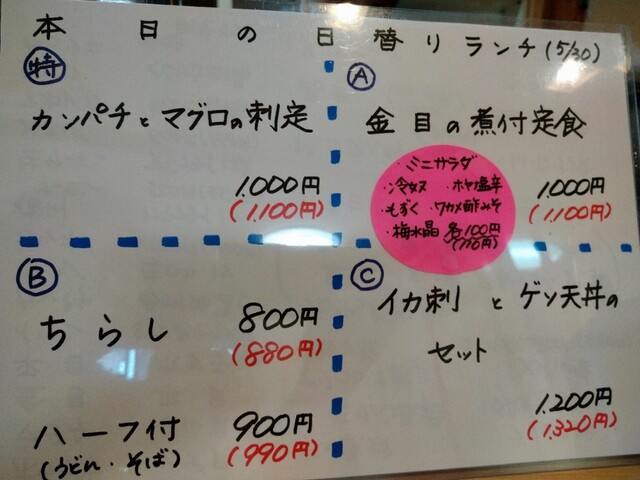 本日の日替りランチ(5/30)
特
カンパチとマグロの刺定
1.000円
(1,100円)
A
金目の煮付定食
1.000円
(1,100円)
・ミニサラダ
・冷奴 ・ホヤ塩辛
・もずく ・ワカメ酢みそ
・梅水晶 各100円
(110円)
B
ちらし 800円
(880円)
ハーフ付 900円
(うどん・そば) (990円)
C
イカ刺とゲソ天丼の
セット
1.200円
(1.320円)